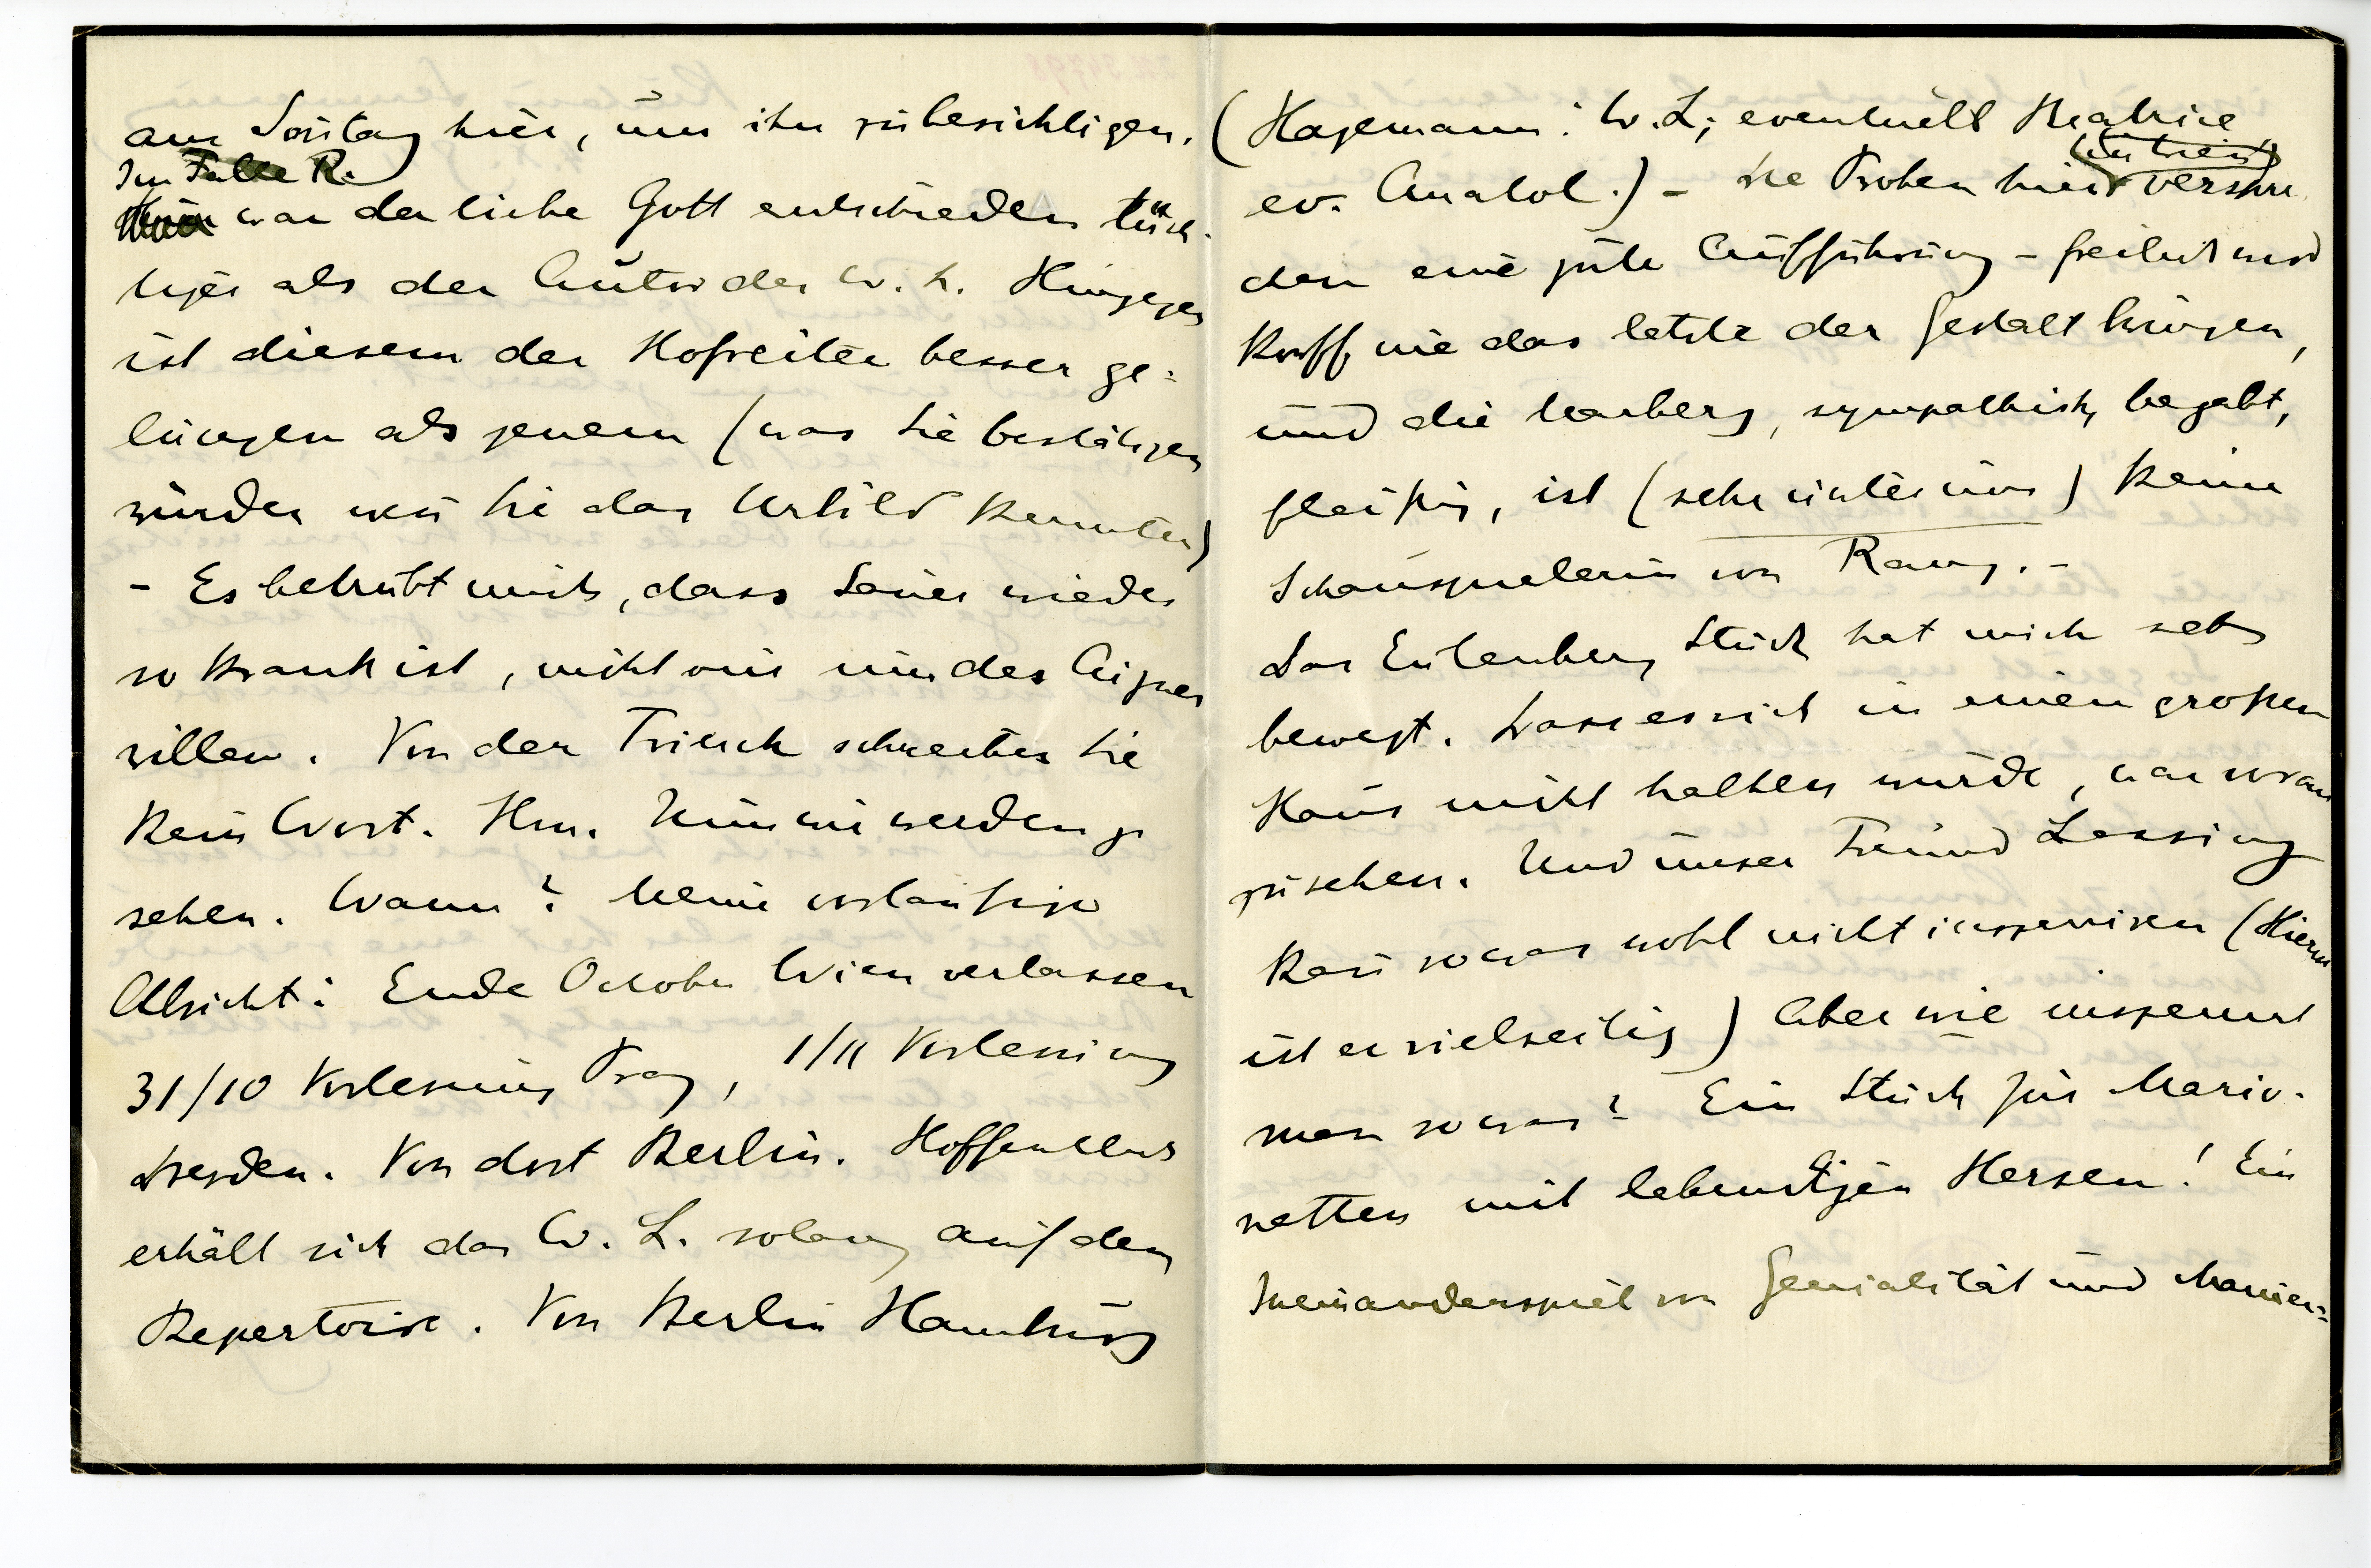 am Soñtag hier, um ihn zu besichtigen.
Im Falle R.
war der liebe Gott entschieden tüch-
tiger als der Autor der W. L. Hingegen
ist diesem der Hofreiter besser ge-
lungen als jenem (was Sie bestätigen
würden weñ Sie das Urbild kennten)
– Es betrübt mich, dass Sauer wieder
so krank ist, nicht nur um des Aigner
willen. Von der Triesch schreiben Sie
kein Wort. Hm. Nun wir werden ja
sehen. Wann? Meine vorläufige
Absicht: Ende October Wien verlassen
31/10 Vorlesung Prag, 1/11 Vorlesung
Dresden. Von dort Berlin. Hoffentlich
erhält sich das W. L. solang auf dem
Repertoire. Von Berlin Hamburg
(Hagemann: W. L; eventuell Beatrice
ev. Anatol.) – Die Proben hier versprе-
(in Wien)
chen eine gute Aufführung – freilich wird
Korff nie das letzte der Gestalt bringen,
und die Marberg, sympathisch, begabt,
fleißig, ist (sehr unter uns) keine
Schauspielerin von Rang. –
Das Eulenberg Stück hat mich sehr
bewegt. Dass es sich in einem großen
Haus nicht halten würde, war voraus
zusehen. Und unser Freund Lessing
kañ sowas wohl nicht insceniren (Hierin
ist er vielseitig) Aber wie inscenirt
man sowas? Ein Stück für Mario-
netten mit lebendigen Herzen! Ein
Ineinanderspiel von Genialität und Manier-